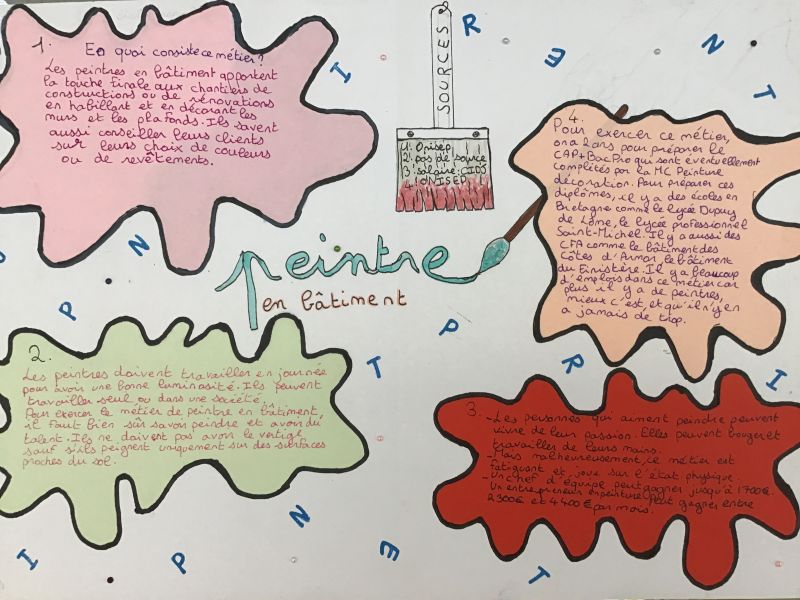 1. En quoi consiste ce métier?
Les peintres en bâtiment apportent
la touche finale aux chantiers de
constructions ou de rénovations
en habillant et en décorant les
murs et les plafonds. Ils savent
aussi conseiller leurs clients
sur leurs choix de couleurs
ou de revêtements.
SOURCES
1. Onisep
2. pas de source
3. salaire: CIDJ
4. ONISEP
peintre
en bâtiment
2.
Les peintres doivent travailler en journée
pour avoir une bonne luminosité. Ils peuvent
travailler seul ou dans une société.
Pour exercer le métier de peintre en bâtiment,
il faut bien sûr savoir peindre et avoir du
talent. Ils ne doivent pas avoir le vertige
sauf s'ils peignent uniquement sur des surfaces
proches du sol.
3. - Les personnes qui aiment peindre peuvent
vivre de leur passion. Elles peuvent bouger et
travailler de leurs mains.
- Mais malheureusement, ce métier est
fatiguant et joue sur l'état physique.
- Un chef d'équipe peut gagner jusqu'à 1700€.
Un entrepreneur en peinture peut gagner entre
2300€ et 4400€ par mois.
4.
Pour exercer ce métier,
on a 2 ans pour préparer le
CAP + Bac Pro qui sont éventuellement
complités par la MC Peinture
décoration. Pour préparer ces
diplômes, il y a des écoles en
Bretagne comme le lycée Dupuy
de Lôme, le lycée professionnel
Saint-Michel. Il y a aussi des
CFA comme le bâtiment des
Côtes d'Armor, le bâtiment
du Finistère. Il y a beaucoup
d'emplois dans ce métier car
plus il y a de peintres,
mieux c'est, et qu'il n'y en
a jamais de trop.
I R E N T
P N
P T P R I
I P N E T